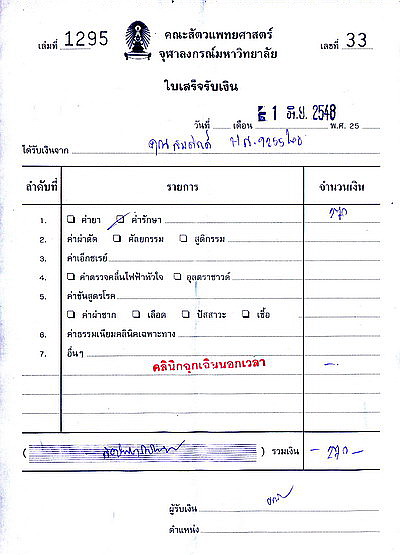 เล่มที่ 1295 คณะสัตวแพทยศาสตร์ เลขที่ 33
จุฬาลงกรณ์มหาวิทยาลัย
ใบเสร็จรับเงิน
วันที่ เดือน 1 มิ.ย. 2548 พ.ศ. 25
ได้รับเงินจาก คุณสมศักดิ์
ลำดับที่ รายการ จำนวนเงิน
1. ค่ายา ค่ารักษา
2. ค่าผ่าตัด ศัลยกรรม สูติกรรม
3. ค่าเอ็กซเรย์
4. ค่าตรวจคลื่นไฟฟ้าหัวใจ อุลตราซาวด์
5. ค่าชันสูตรโรค
ค่าผ่าซาก เลือด ปัสสาวะ เชื้อ
6. ค่าธรรมเนียมคลินิคเฉพาะทาง
7. อื่นๆ
คลินิกฉุกเฉินนอกเวลา
( ) รวมเงิน
ผู้รับเงิน
ตำแหน่ง